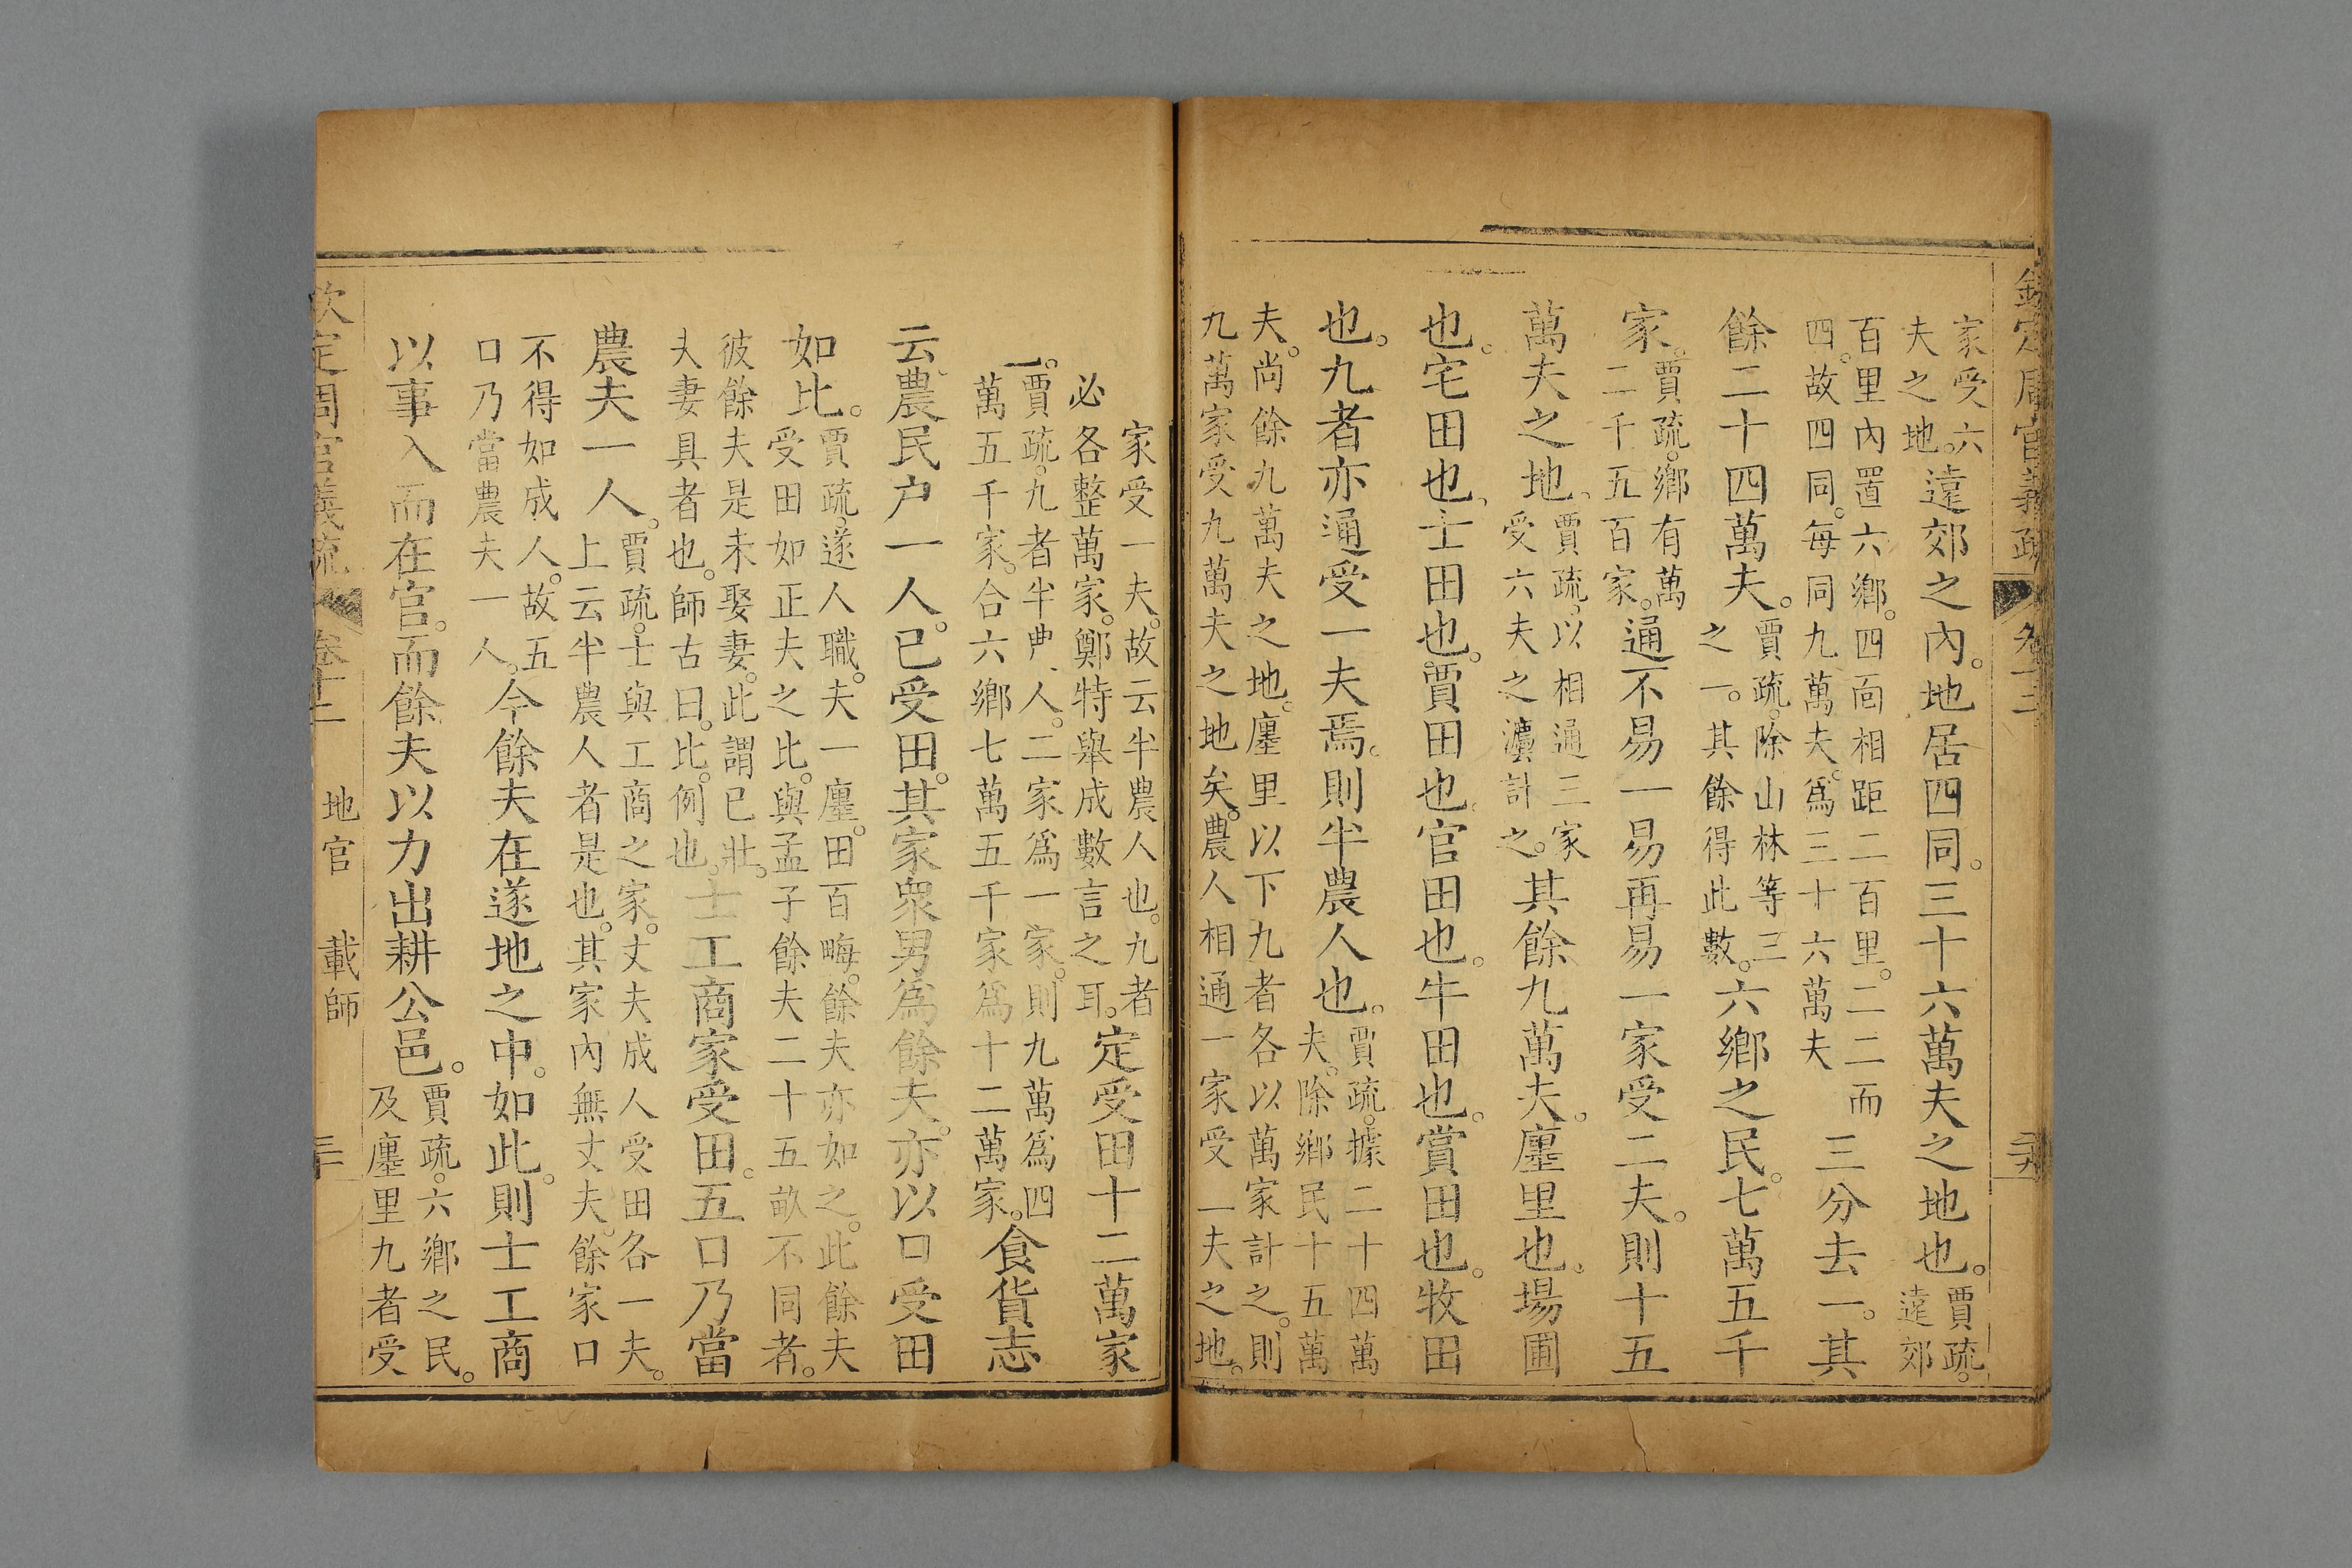 欽定周官義疏 卷十二
家受六夫之地。遠郊之內。地居四同。三十六萬夫之地也。賈疏。遠郊
百里內置六鄉。四面相距二百里。二二而四。故四同。每同九萬夫。爲三十六萬夫 三分去一。其
餘二十四萬夫。賈疏。除山林等三之一。其餘得此數。六鄉之民。七萬五千
家。賈疏。鄉有萬二千五百家。通不易一易再易一家受二夫。則十五
萬夫之地。賈疏。以相通三家受六夫之灋計之。其餘九萬夫。廛里也。場圃
也。宅田也。士田也。賈田也。官田也。牛田也。賞田也。牧田
也。九者亦通受一夫焉。則半農人也。賈疏。據二十四萬夫。除鄉民十五萬
夫。尚餘九萬夫之地。廛里以下九者各以萬家計之。則九萬家受九萬夫之地矣。農人相通一家受一夫之地。
家受一夫。故云半農人也。九者必各整萬家。鄭特舉成數言之耳。定受田十二萬家
也。賈疏。九者半農人。二家爲一家。則九萬爲四萬五千家。合六鄉七萬五千家爲十二萬家。食貨志
云。農民户一人。已受田。其家衆男爲餘夫。亦以口受田
如比。賈疏。遂人職。夫一廛。田百畮。餘夫亦如之。此餘夫受田如正夫之比。與孟子餘夫二十五畝不同者。
彼餘夫是未娶妻。此謂已壯。夫妻具者也。師古曰。比。例也。士工商家受田。五口乃當
農夫一人。賈疏。士與工商之家。丈夫成人受田各一夫。上云半農人者是也。其家內無丈夫。餘家口
不得如成人。故五口乃當農夫一人。今餘夫在遂地之中。如此。則士工商
以事入而在官。而餘夫以力出耕公邑。賈疏。六鄉之民。及廛里九者受
欽定周官義疏 卷十二 地官 載師